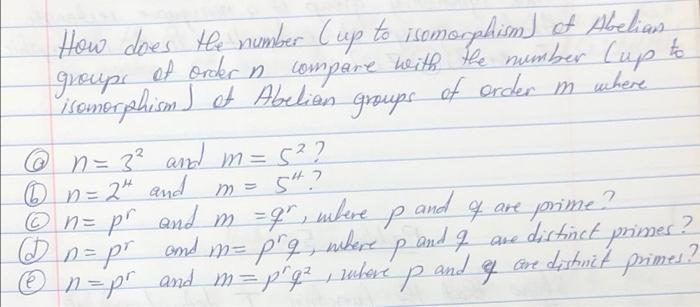 How does the number (up to isomorphism) of Abelian
groups of order n compare with the number (up to
isomorphism) of Abelian groups of order m where
(a) n = 3² and m = 5²?
(b) n = 2⁴ and m = 5⁴?
(c) n = pʳ and m = qʳ, where p and q are prime?
(d) n = pʳ and m = pʳq, where p and q are distinct primes?
(e) n = pʳ and m = pʳq², where p and q are distinct primes?